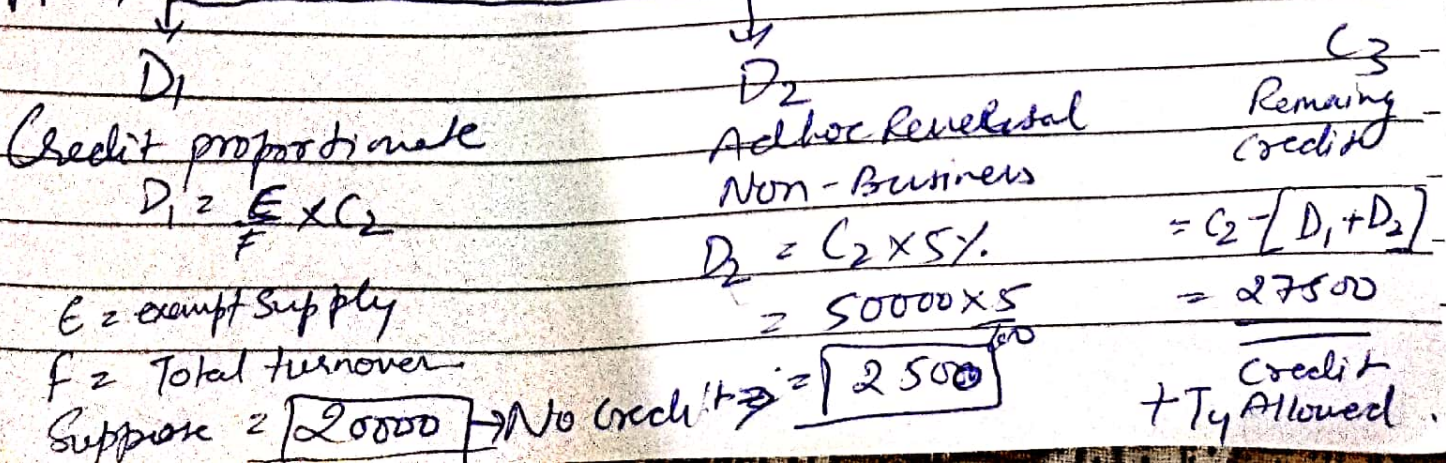 D1
Credit proportionate
D1 = E/F × C2
E = exempt supply
F = Total turnover
Suppose = 20000 → No Credit ⇒
D2
Adhoc Reversal
Non-Business
D2 = C2 × 5%.
= 50000 × 5/100
= 2500
C3
Remaing
Credit
= C2 - [D1 + D2]
= 27500
Credit
+ T4 Allowed.